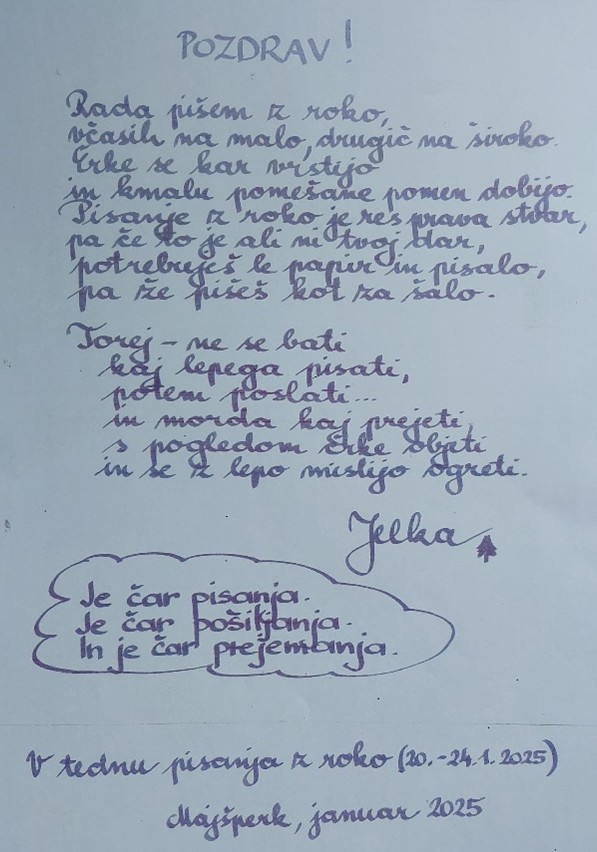 POZDRAV!
Rada pišem z roko,
včasih na malo, drugič na široko.
Črke se kar vrstijo
in kmalu pomešane pomen dobijo.
Pisanje z roko je res prava stvar,
pa če to je ali ni tvoj dar,
potrebuješ le papir in pisalo,
pa že pišeš kot za šalo.
Torej – ne se bati
kaj lepega pisati,
potem poslati...
in morda kaj prejeti,
s pogledom črke objeti
in se z lepo mislijo ogreti.
Jelka
Je čar pisanja.
Je čar pošiljanja.
In je čar prejemanja.
V tednu pisanja z roko (20.-24.1.2025)
Majšperk, januar 2025